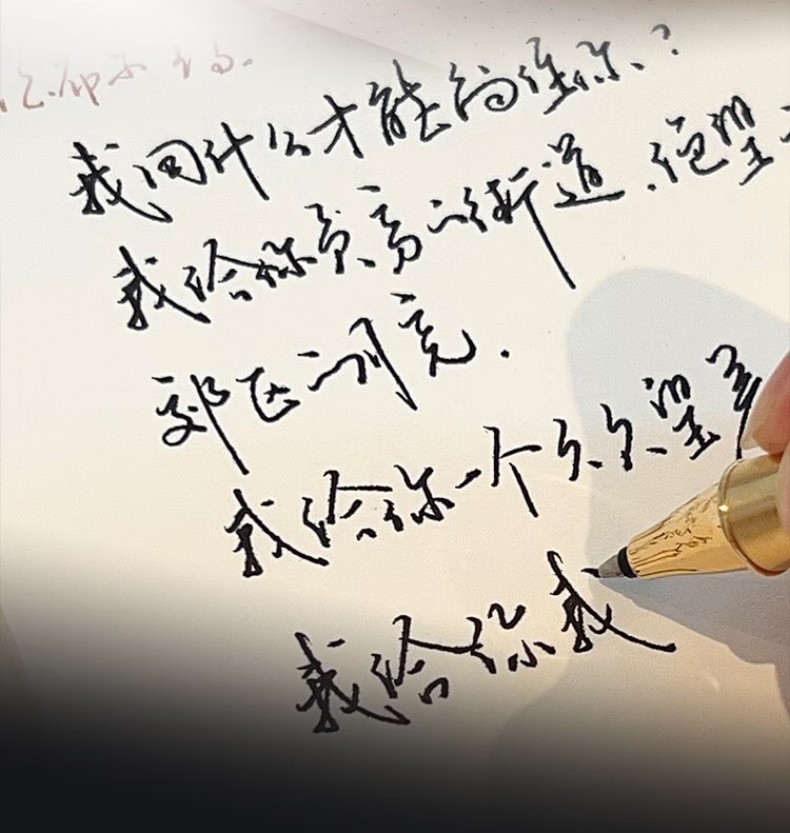 我用什么才能留住你?
我给你贫穷的街道.绝望
郊区的月亮.
我给你一个久久望着
我给你我